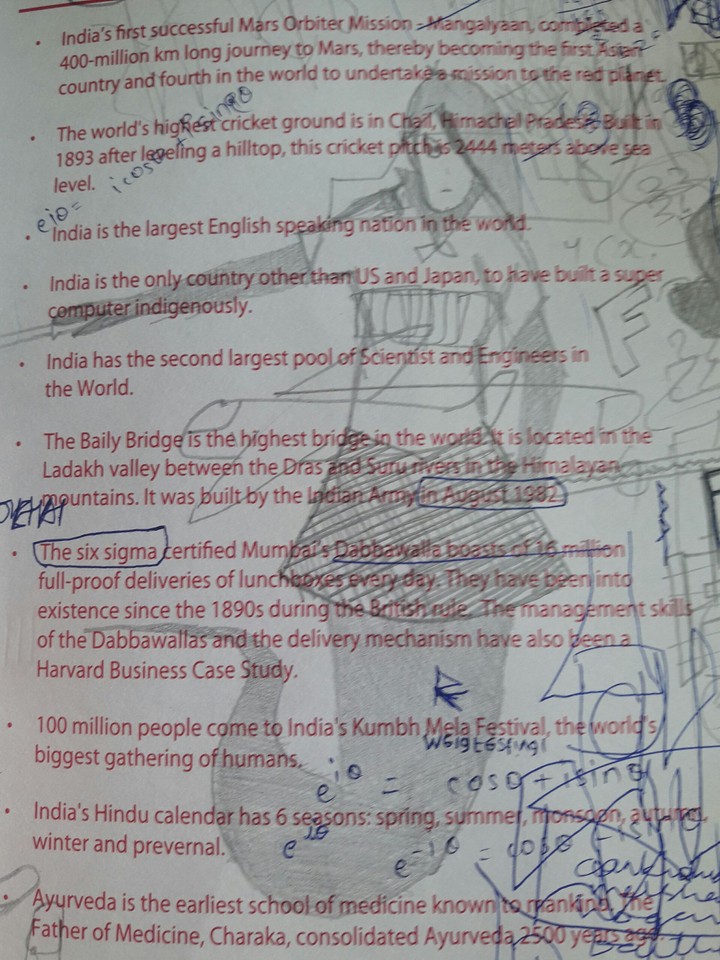 India's first successful Mars Orbiter Mission - Mangalyaan, completed a
400-million km long journey to Mars, thereby becoming the first Asian
country and fourth in the world to undertake a mission to the red planet.
The world's highest cricket ground is in Chail, Himachal Pradesh. Built in
1893 after leveling a hilltop, this cricket pitch is 2444 meters above sea
level.
eiθ = icosθ + isinθ
India is the largest English speaking nation in the world.
India is the only country other than US and Japan, to have built a super
computer indigenously.
India has the second largest pool of Scientist and Engineers in
the World.
The Baily Bridge is the highest bridge in the world. It is located in the
Ladakh valley between the Dras and Suru rivers in the Himalayan
mountains. It was built by the Indian Army in August 1982.
The six sigma certified Mumbai's Dabbawalla boasts of 16 million
full-proof deliveries of lunchboxes every day. They have been into
existence since the 1890s during the British rule. The management skills
of the Dabbawallas and the delivery mechanism have also been a
Harvard Business Case Study.
100 million people come to India's Kumbh Mela Festival, the world's
biggest gathering of humans.
e^iθ = cosθ + isinθ
India's Hindu calendar has 6 seasons: spring, summer, monsoon, autumn,
winter and prevernal.
e^iθ
e^-iθ = cosθ - isinθ
Ayurveda is the earliest school of medicine known to mankind. The
Father of Medicine, Charaka, consolidated Ayurveda 2500 years ago.